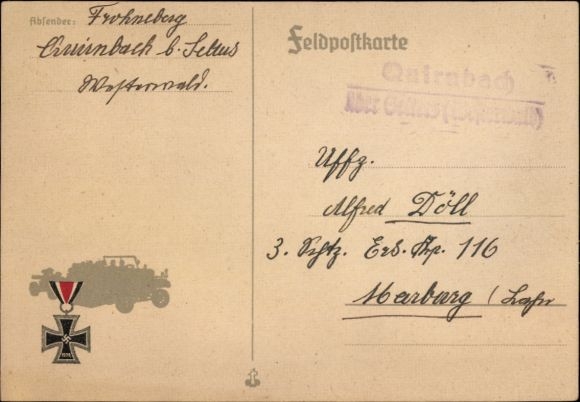 Absender: Frohneberg
Quirnbach b. Selters
Westerwald.
Feldpostkarte
Quirnbach
über Selters (Westerwald)
Uffz.
Alfred Döll
3. Schtz. Ers. Kp. 116
Marburg / Lahn
1939